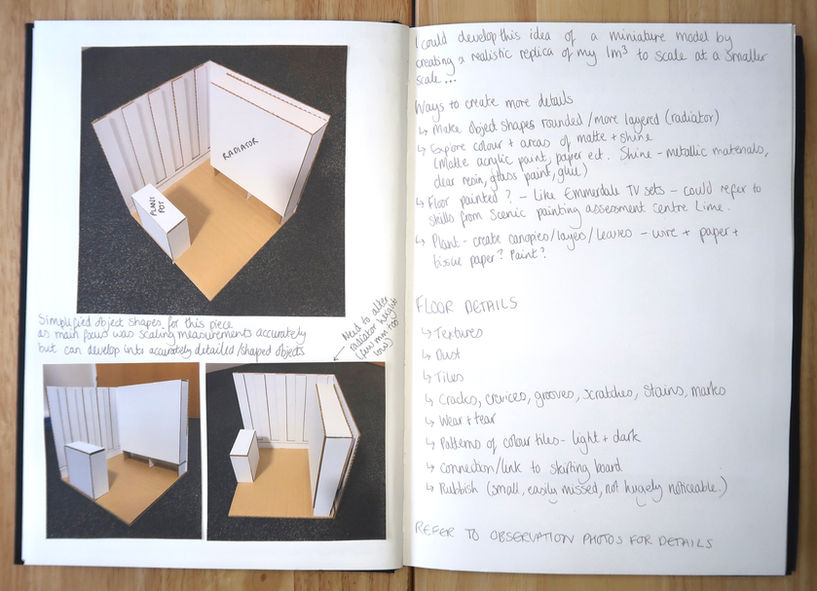 RADIATOR
PLANT
POT
Simplified object shapes for this piece
as main focus was scaling measurements accurately
but can develop into accurately detailed/shaped objects
Need to alter
radiator height
low)
I could develop this idea of a miniature model by
creating a realistic replica of my 1m³ to scale at a smaller
scale...
Ways to create more details
↳ Make object shapes rounded/more layered (radiator)
↳ Explore colour + areas of matte + shine
(Matte acrylic paint, paper ect. Shine - metallic materials,
clear resin, glass paint, glue)
↳ Floor painted? - Like Emmerdale TV sets - could refer to
skills from Scenic painting assessment centre Lime.
↳ Plant - create canopies/layers/leaves - wire + paper +
tissue paper? Paint?
FLOOR DETAILS
↳ Textures
↳ Dust
↳ Tiles
↳ Cracks, crevices, grooves, scratches, stains, marks
↳ Wear + tear
↳ Patterns of colour tiles - light + dark
↳ Connection/link to starting board
↳ Rubbish (small, easily missed, not hugely noticeable.)
REFER TO OBSERVATION PHOTOS FOR DETAILS